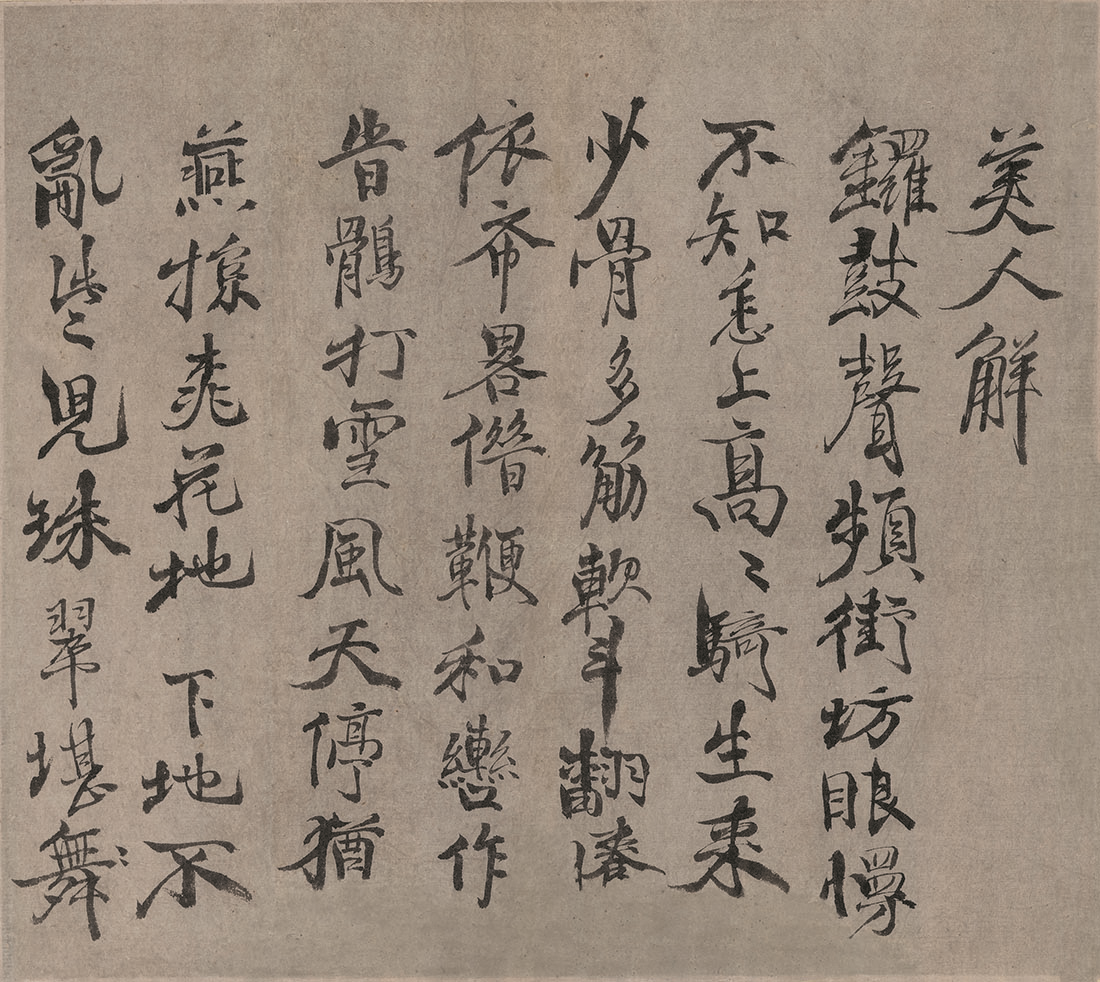 美人解
鑼鼓聲頻街坊眼慢
不知怎上高〻騎生來
少骨多筋軟斗翻
依希畧借鞭和轡作
旹鶻打雪風天停猶
燕掠桃花地 下地不
亂些〻兒珠翠堪舞